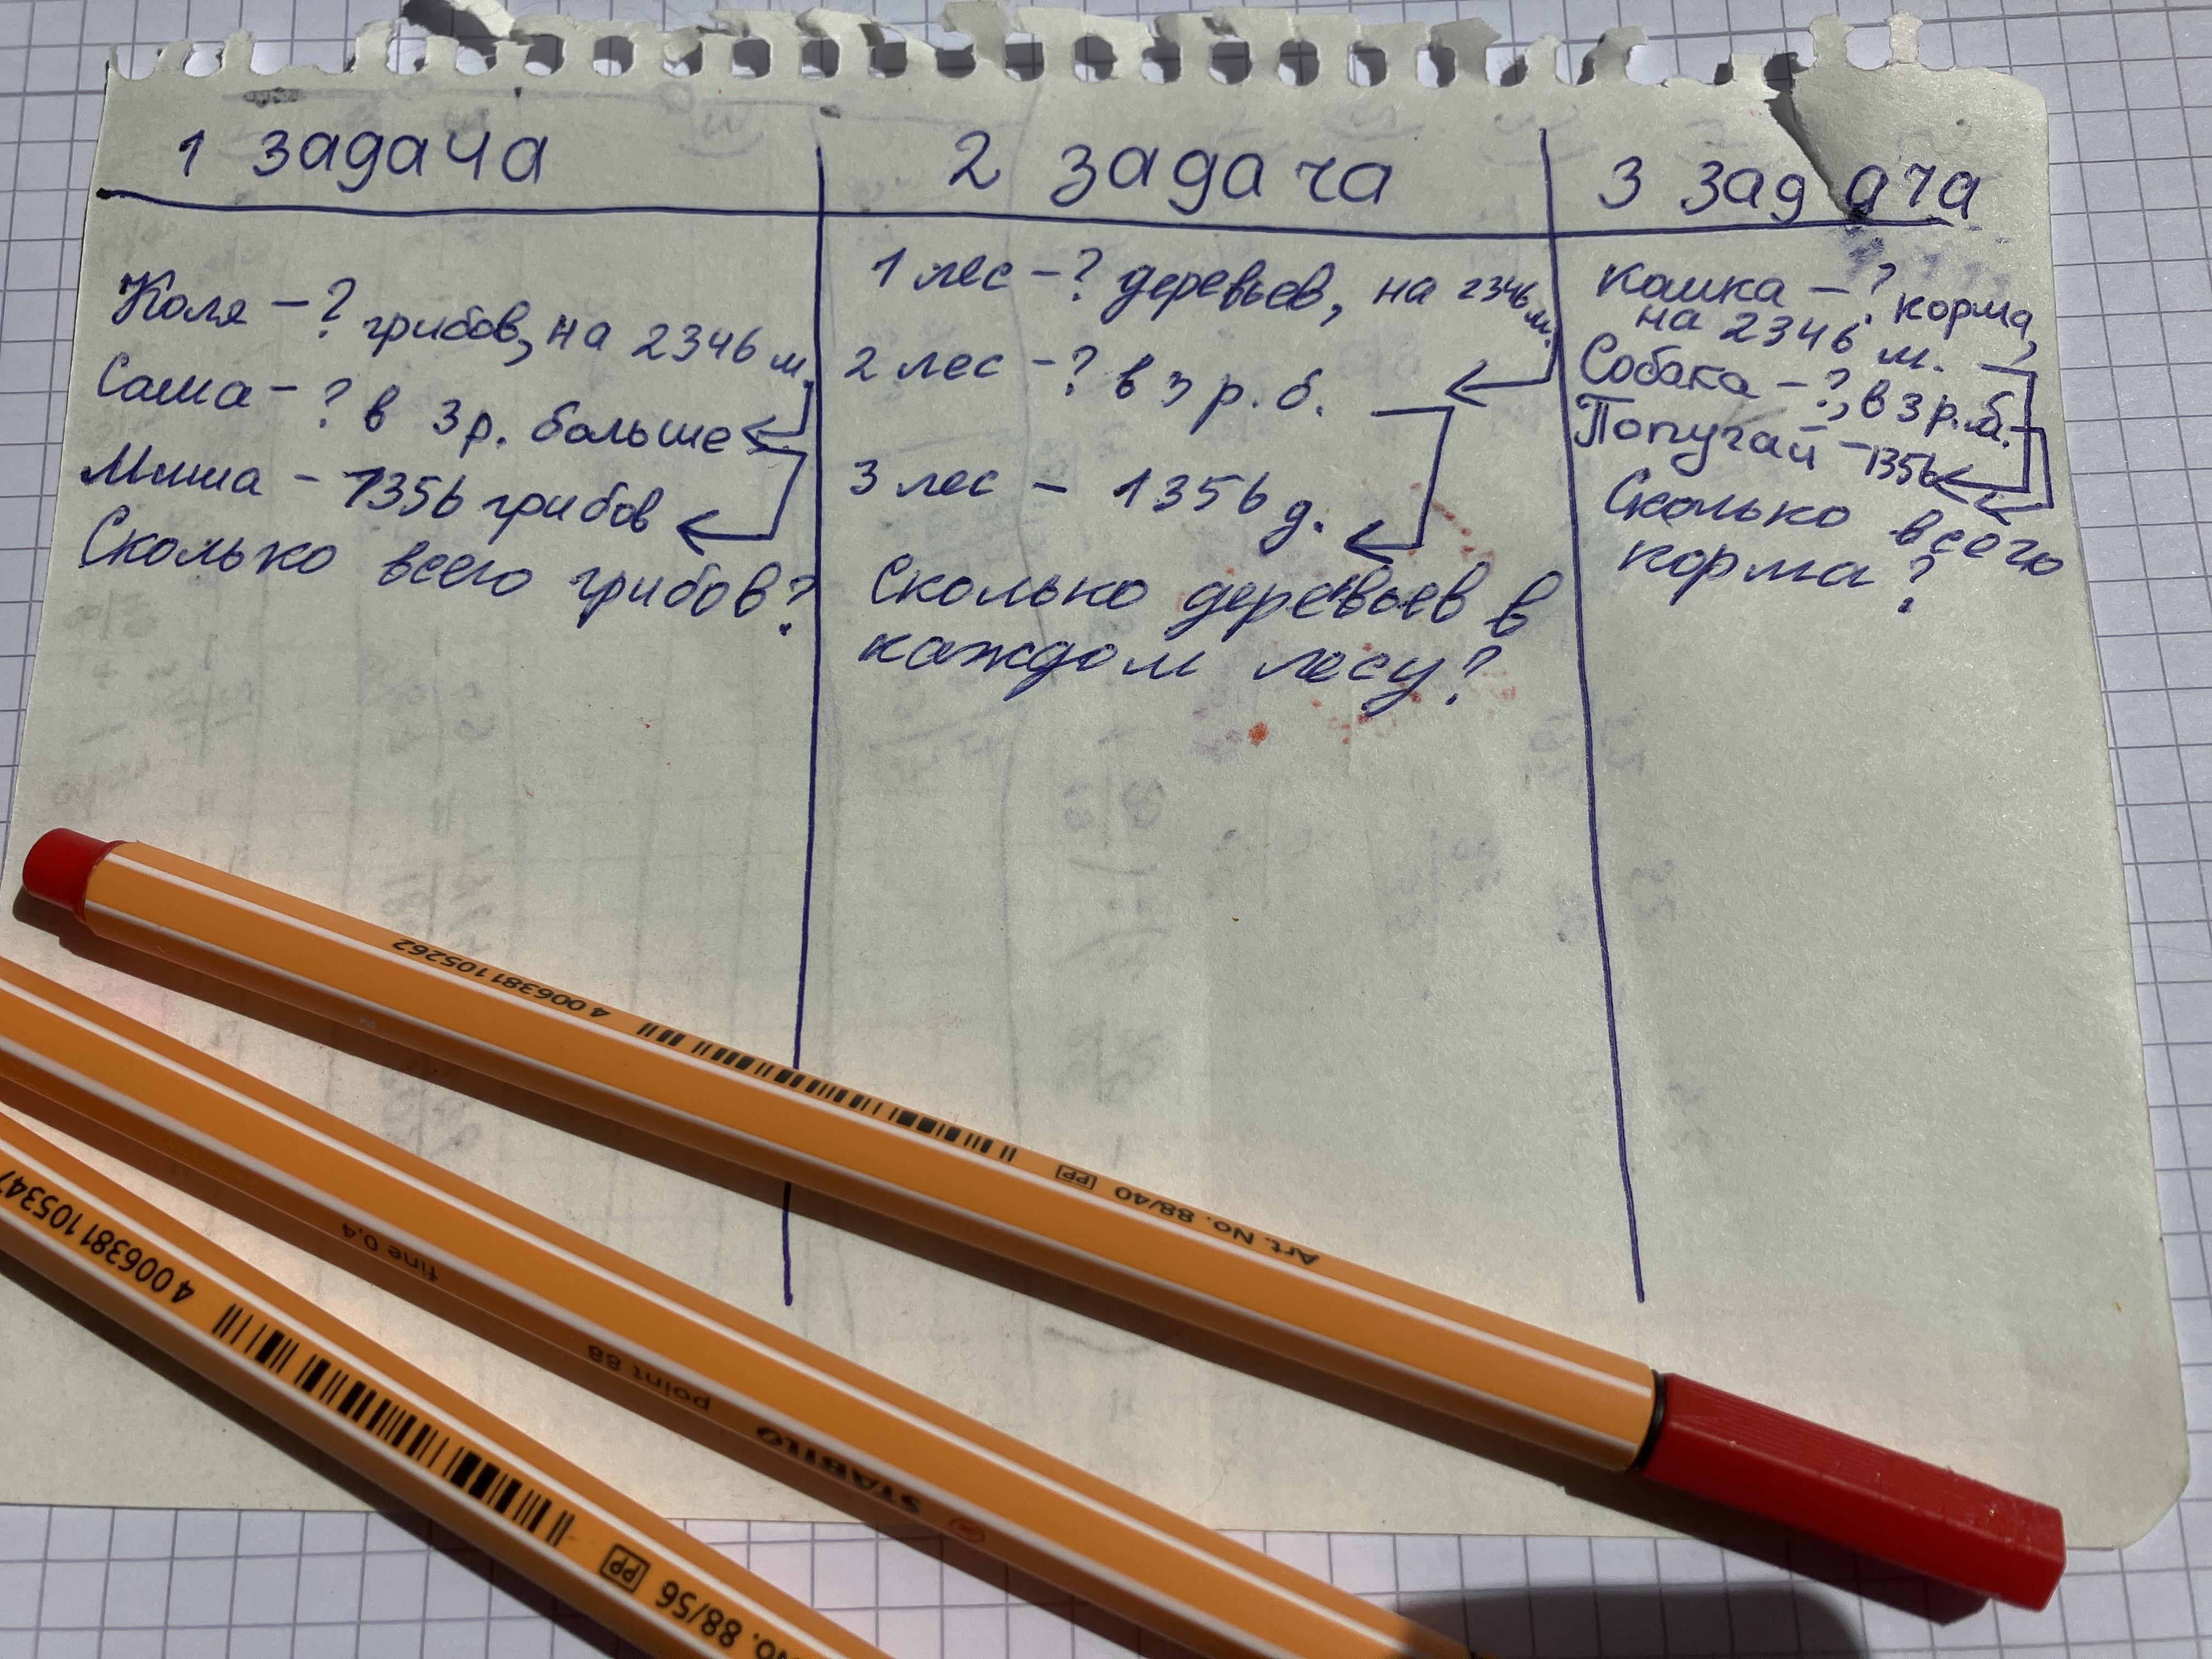 1 задача
Коля – ? грибов, на 2346 м.
Саша – ? в 3 р. больше
Миша – 1356 грибов
Сколько всего грибов?
2 задача
1 лес – ? деревьев, на 2346 м.
2 лес – ? в 3 р. б.
3 лес – 1356 д.
Сколько деревьев в
каждом лесу?
3 задача
Кошка – ? корма,
на 2346 м.
Собака – ?, в 3 р. б.
Попугай – 1356
Сколько всего
корма?
4 006381 105262
Art. No. 88/40 PP
fine 0,4
point 88
STABILO
4 006381 105347
No. 88/56 PP